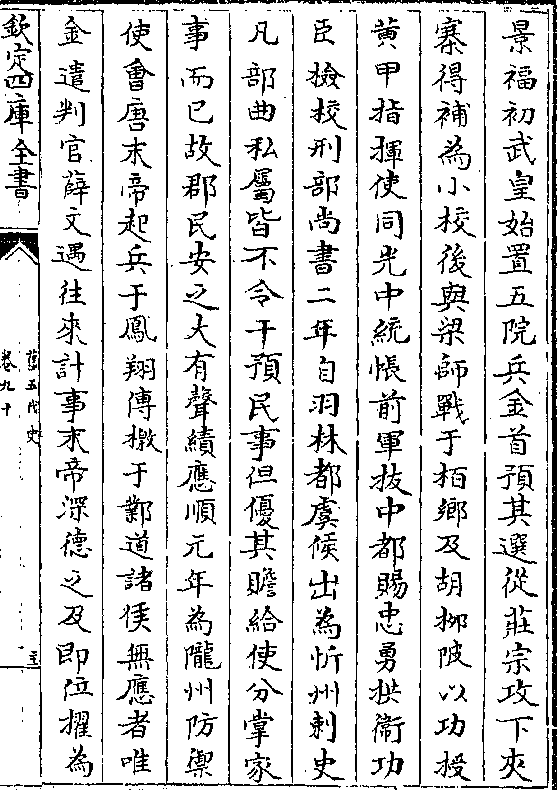 景福初武皇始置五院兵金首預其選從莊宗攻下夾
寨得補為小校後與梁師戰于柏鄉及胡柳陂以功授
黄甲指揮使同光中統帳前軍拔中都賜忠勇拱衛功
臣檢校刑部尚書二年自羽林都虞候出為忻州刺史
凡部曲私屬皆不令干預民事但優其贍給使分掌家
事而已故郡民安之大有聲績應順元年為隴州防禦
使會唐末帝起兵于鳳翔傳檄于鄰道諸侯無應者唯
金遣判官薛文遇往來計事末帝深德之及即位擢為
欽定四庫全書
舊五代史
卷九十